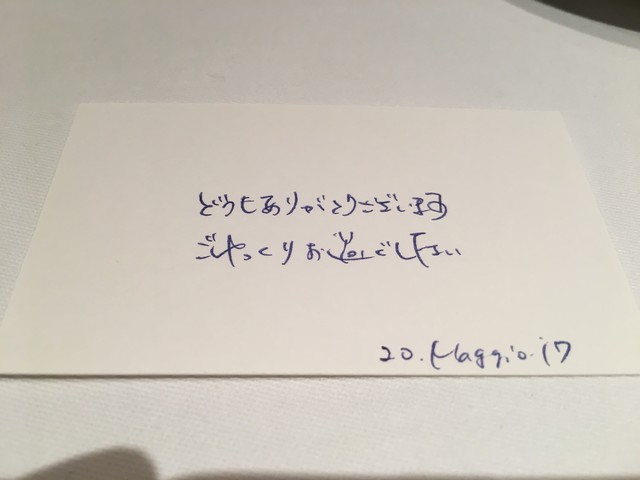 どうもありがとうございます
ごゆっくりお過ごし下さい
20.Maggio.17